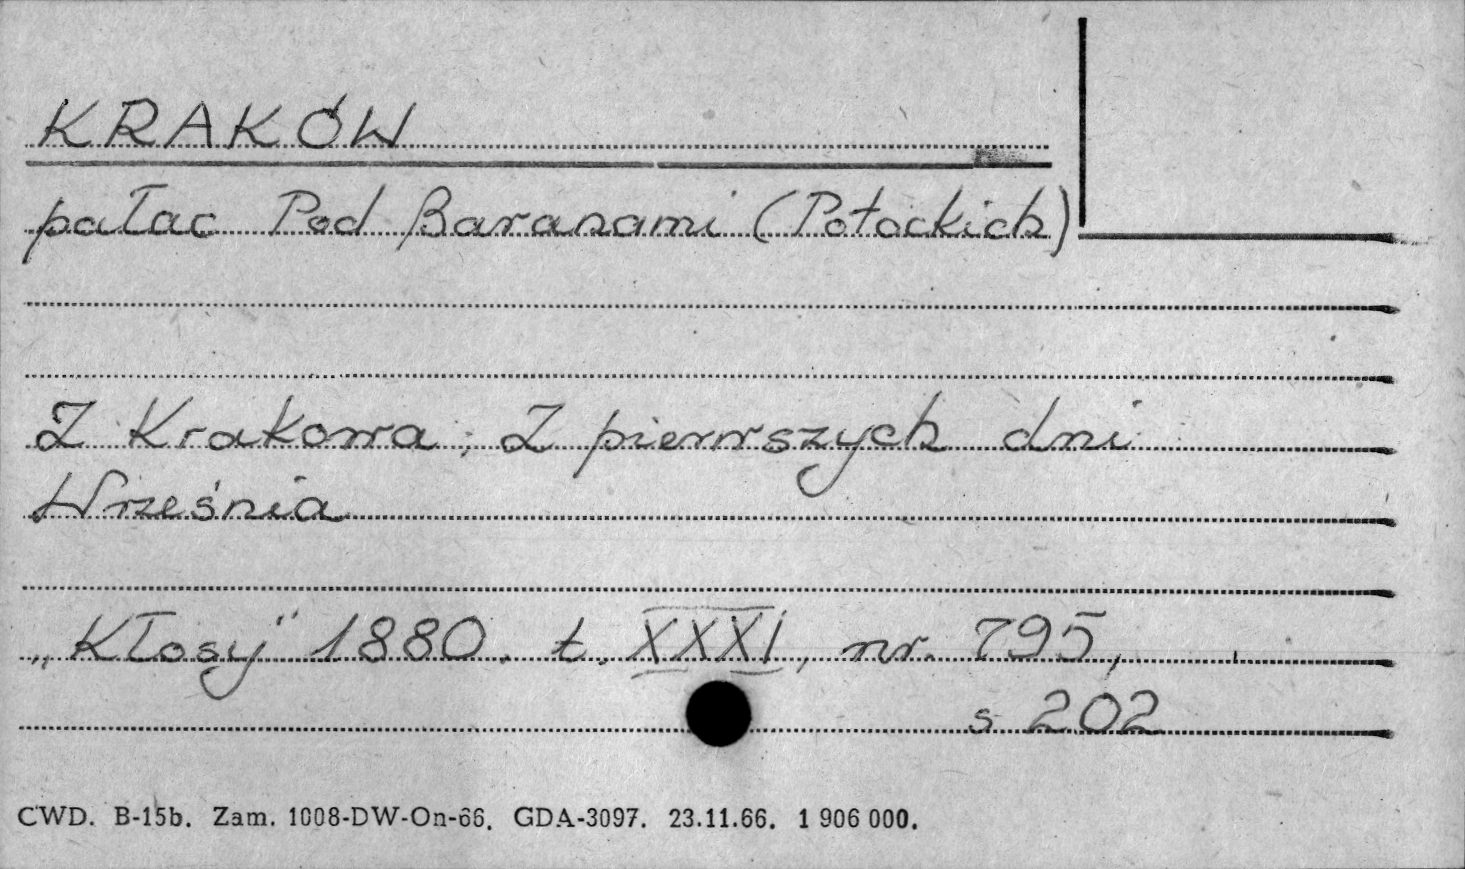 KRAKÓW
pałac Pod Baranami (Potockich)
Z Krakowa; Z pierwszych dni
Września
„Kłosy" 1880. t. XXXI, nr. 795,
s 202
CWD. B-15b. Zam. 1008-DW-On-66. GDA-3097. 23.11.66. 1 906 000.